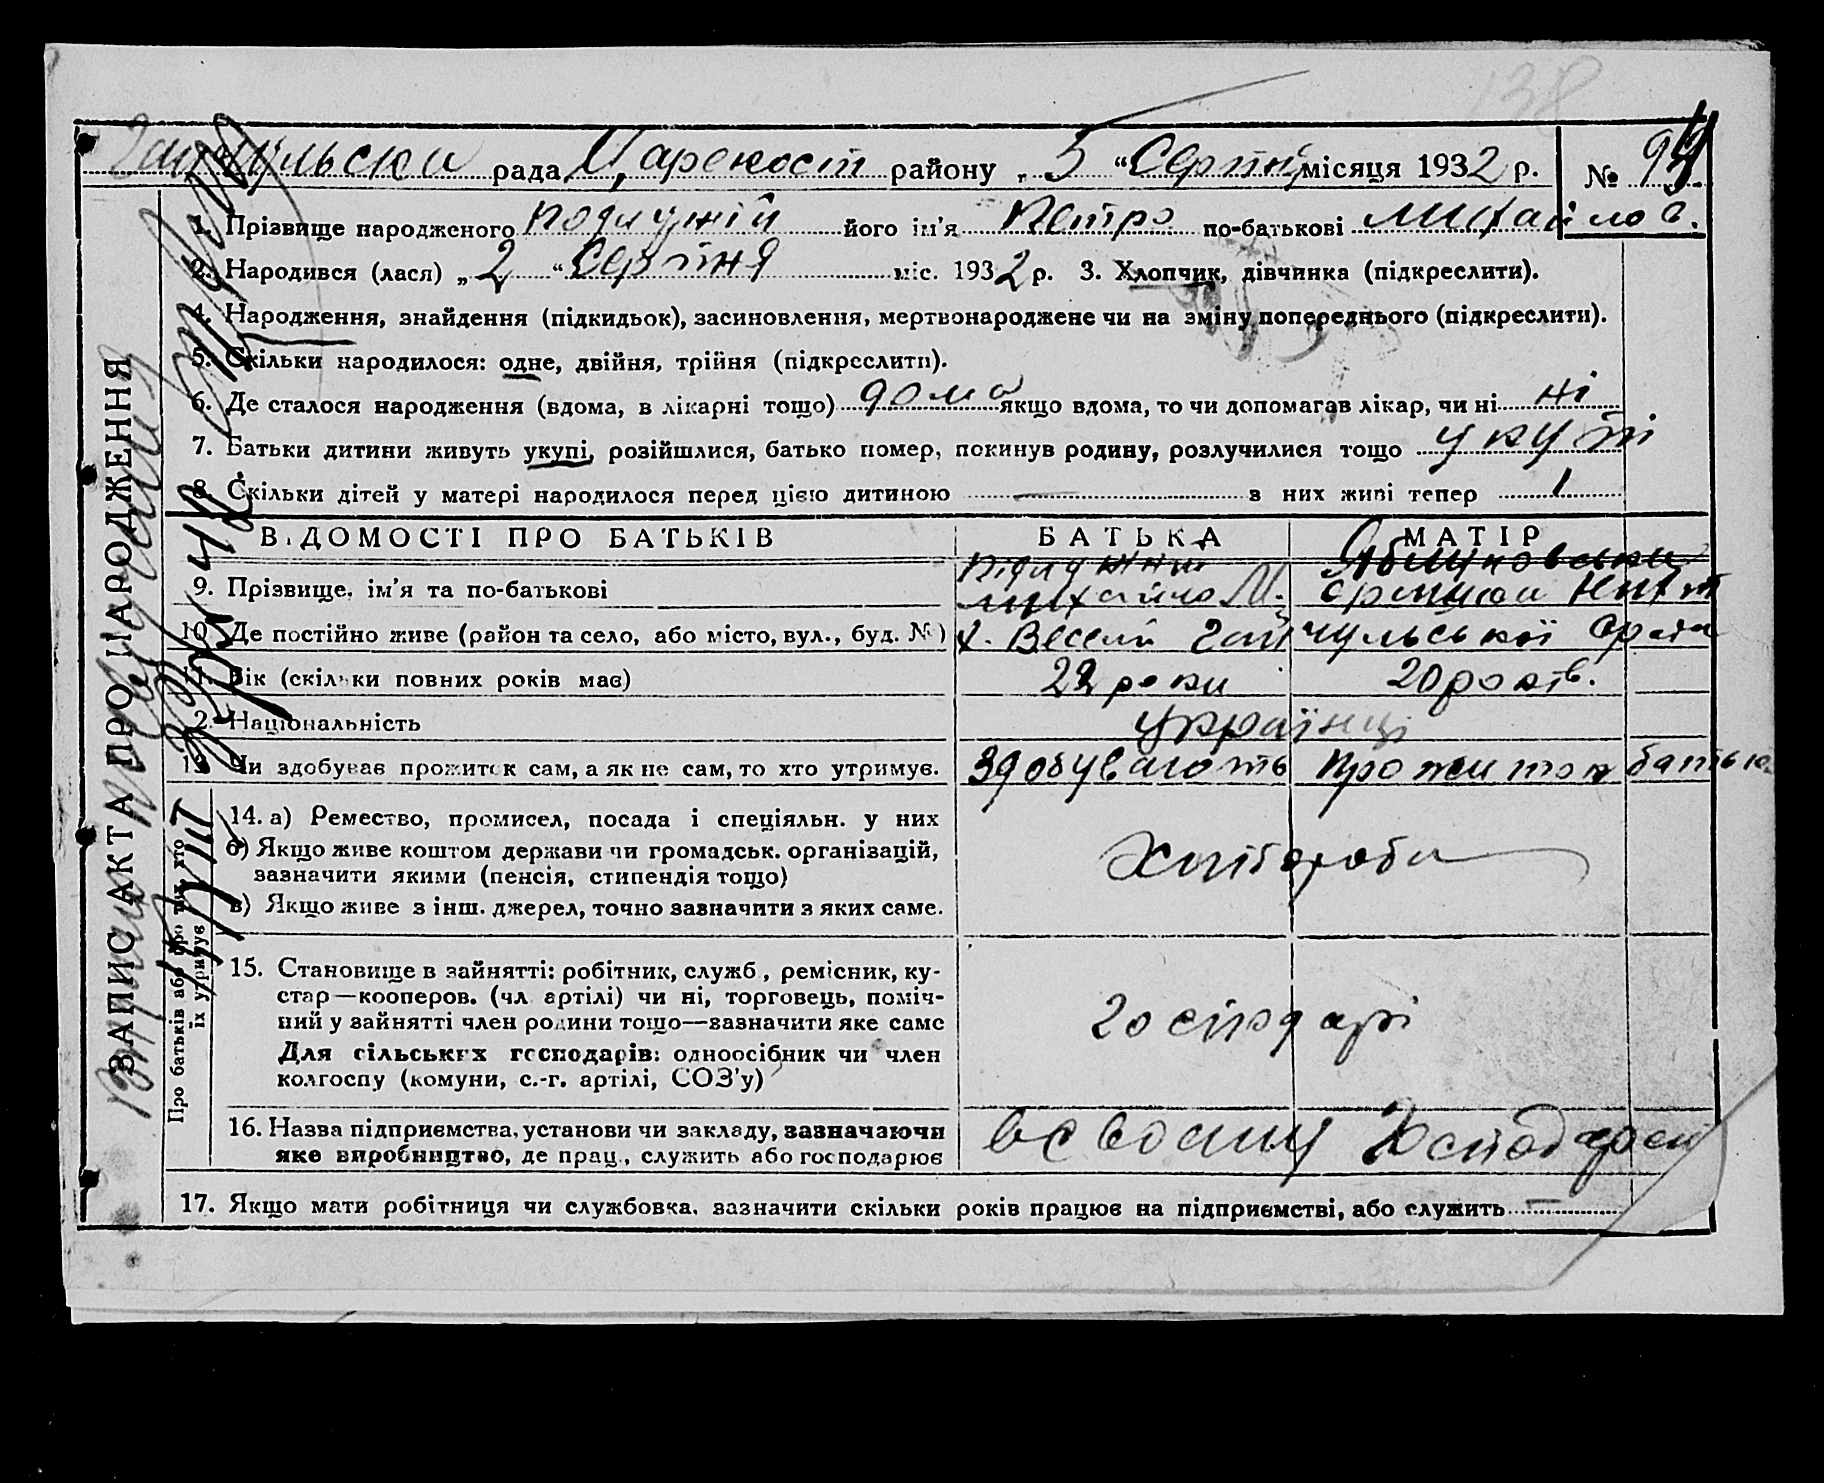 138
рада Царекост району „ 5 “ Серпня місяця 1932 р. № 94
1. Прізвище народженого його ім'я Петро по-батькові Михайлов.
2. Народився (лася) „ 2 “ Серпня міс. 1932 р. 3. Хлопчик, дівчинка (підкреслити).
4. Народження, знайдення (підкидьок), засиновлення, мертвонароджене чи на зміну попереднього (підкреслити).
5. Скільки народилося: одне, двійня, трійня (підкреслити).
6. Де сталося народження (вдома, в лікарні тощо) дома якщо вдома, то чи допомагав лікар, чи ні ні
7. Батьки дитини живуть укупі, розійшлися, батько помер, покинув родину, розлучилися тощо укупі
8. Скільки дітей у матері народилося перед цією дитиною — з них живі тепер 1
ВІДОМОСТІ ПРО БАТЬКІВ БАТЬКА МАТІР
9. Прізвище, ім'я та по-батькові Михайло М.
10. Де постійно живе (район та село, або місто, вул., буд. №) х. Веселий Гайчульської
11. Вік (скільки повних років має) 22 роки 20 років.
12. Національність українці
13. Чи здобуває прожиток сам, а як не сам, то хто утримує. Здобувають прожиток батька
14. а) Ремество, промисел, посада і спеціяльн. у них
б) Якщо живе коштом держави чи громадськ. організацій,
зазначити якими (пенсія, стипендія тощо)
в) Якщо живе з інш. джерел, точно зазначити з яких саме.
Хлібороби
15. Становище в зайнятті: робітник, служб., ремісник, ку-
стар—кооперов. (чл. артілі) чи ні, торговець, поміч-
ний у зайнятті член родини тощо—зазначити яке саме
Для сільських господарів: одноосібник чи член
колгоспу (комуни, с.-г. артілі, СОЗ'у)
господарі
16. Назва підприємства, установи чи закладу, зазначаючи
яке виробництво, де прац., служить або господарює
17. Якщо мати робітниця чи службовка, зазначити скільки років працює на підприємстві, або служить —
ЗАПИС АКТА ПРО НАРОДЖЕННЯ
Про батьків або про тих, хто
їх утримує